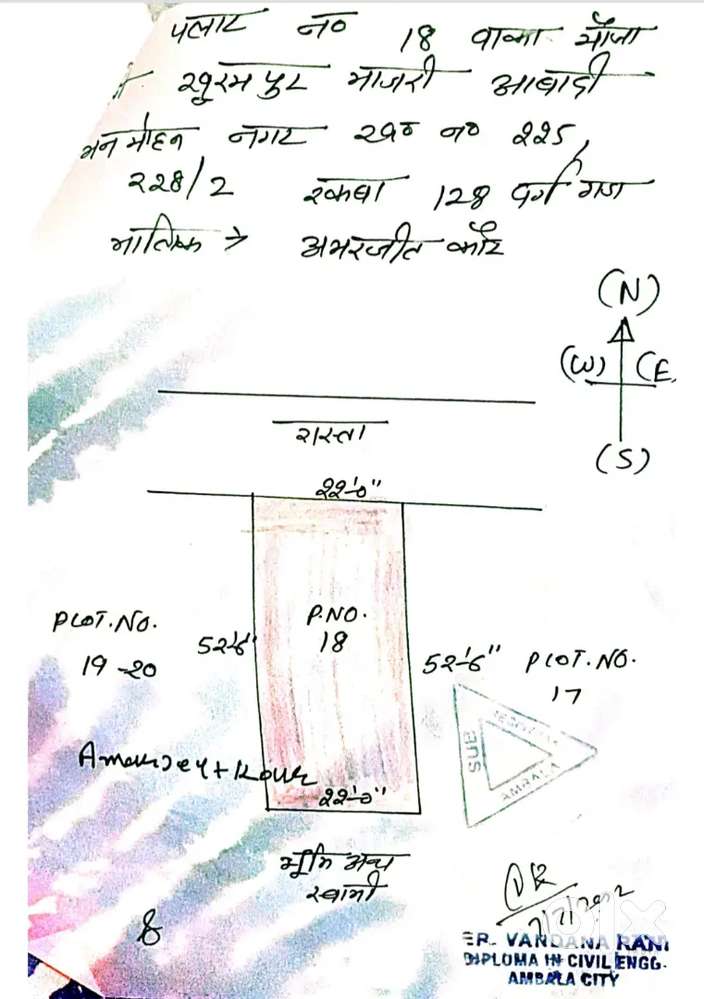 पलाट नं० 18 वाका मौजा
खुरमपुर माजरी आबादी
मनमोहन नगर ख० न० 225,
228/2 रकबा 128 वर्ग गज
मालिक → अमरजीत कौर
(N)
(W) (E
(S)
रास्ता
22'-0"
PLOT. NO.
19-20
52'-6"
P.NO.
18
52'-6"
PLOT. NO.
17
SUB
AMBALA
Amarjeet Kour
22'-0"
भूमि अन्य
स्वामी
8
ER. VANDANA RANI
DIPLOMA IN CIVIL ENGG.
AMBALA CITY